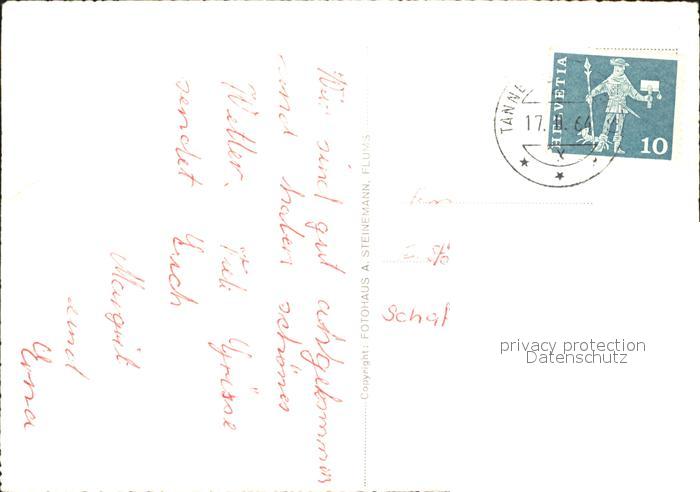 Wir sind gut angekommen
und haben schönes
Wetter. Fili Grüsse
sendet Euch
Margrit
und
Erna
Copyright: FOTOHAUS A. STEINEMANN, FLUMS
HELVETIA
10
TANNE
17. II. 64
Fam
Schaf
privacy protection
Datenschutz